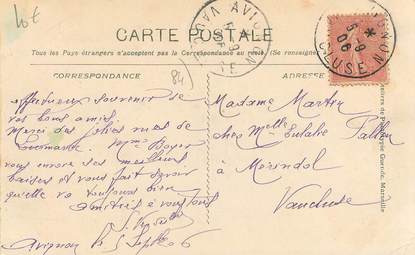 10€
CARTE POSTALE
Tous les Pays étrangers n'acceptent pas la Correspondance au recto (Se renseigner
CORRESPONDANCE
84
ADRESSE
AVIGNON
VAUCLUSE
5-9
06
Affectueux souvenir de
vos bons amis.
Merci des jolies vues de
Mme Boyer
vous envoie ses meilleurs
baisers et vous fait savoir
qu'elle va toujours bien
amitiés à vous tous
Avignon le 5 Septbre 6
Madame Martin
chez Melle Eulalie
à Mérindol
Vaucluse
Guende, Marseille